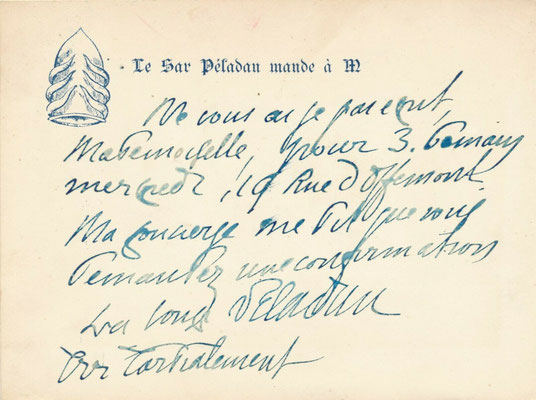 Le Sar Péladan mande à M
Ne vous ai je pas écrit,
Mademoiselle, pour 3. demain
mercredi, 19 Rue d'Offémont.
Ma concierge me dit que vous
demandez une confirmation
La PÉLADAN
Cordialement